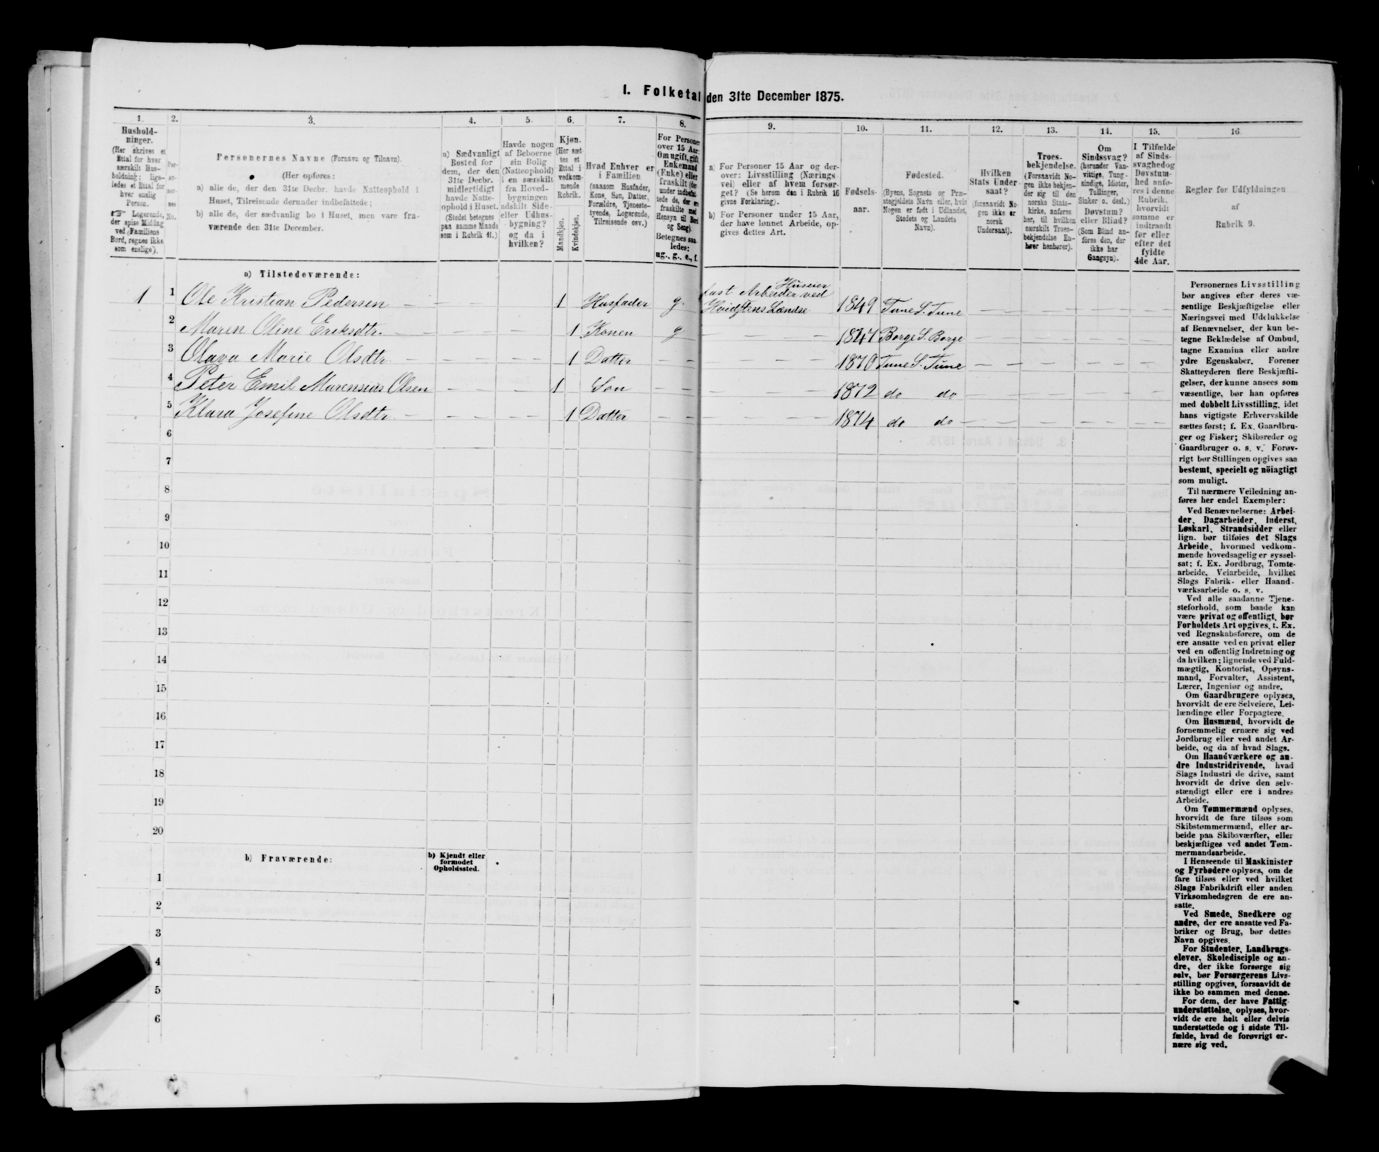 I. Folketal den 31te December 1875.
1. 2. 3. 4. 5. 6. 7. 8. 9. 10. 11. 12. 13. 14. 15. 16.
Hushold-
ninger.
(Her skrives et
Ettal for hver
særskilt Hus-
holdning; lige-
ledes et Ettal for
hver enslig
Person.
☞ Logerende,
der spise Middag
ved Familiens
Bord, regnes ikke
som enslige).
Personernes Navne (Fornavn og Tilnavn).
(Her opføres:
a) alle de, der den 31te Decbr. havde Natteophold i
Huset, Tilreisende derunder indbefattede;
b) alle de, der sædvanlig bo i Huset, men vare fra-
værende den 31te December.
a) Sædvanligt
Bosted for
dem, der den
31te Decbr.
midlertidigt
havde Natte-
ophold i Huset.
(Stedet betegnes
paa samme Maade
som i Rubrik 11.)
Havde nogen
af Beboerne
sin Bolig
(Natteophold)
i en særskilt
fra Hoved-
bygningen
adskilt Side-
eller Udhus-
bygning?
og da i
hvilken?
Kjøn.
(Her sæt-
tes et
Ettal i
vedkom-
mende
Rubrik.
Mandkjøn.
Kvindekjøn.
Hvad Enhver er
i Familien
(saasom Husfader,
Kone, Søn, Datter,
Forældre, Tjeneste-
tyende, Logerende,
Tilreisende osv.)
For Personer
over 15 Aar:
Om ugift, gift,
Enkemand
(Enke) eller
fraskilt
Betegnes saa-
ledes:
ug., g., e., f.
a) For Personer 15 Aar og der-
over: Livsstilling (Nærings-
vei) eller af hvem forsør-
get? (Se herom den i Rubrik 16
givne Forklaring).
b) For Personer under 15 Aar,
der have lønnet Arbeide, op-
gives dettes Art.
Fødsels-
aar.
Fødested.
(Byens, Sognets og Præ-
stegjældets Navn eller, hvis
Nogen er født i Udlandet,
Stedets og Landets
Navn).
Hvilken
Stats Under-
saat?
(forsaavidt No-
gen ikke er
norsk
Undersaat).
Troes-
bekjendelse.
(Forsaavidt No-
gen ikke bekjen-
der sig til den
norske Stats-
kirke, anføres
her, til hvilken
særskilt Troes-
bekjendelse En-
hver henhører).
Om
Sindssvag?
(herunder Van-
vittige, Tung-
sindige, Idioter,
Tullinger,
Sinker o. desl.)
Døvstum?
eller Blind?
(Som Blind an-
føres den, der
ikke har
Gangsyn).
I Tilfælde
af Sinds-
svaghed og
Døvstum-
hed anfø-
res i denne
Rubrik,
hvorvidt
samme er
indtraadt
før eller
efter det
fyldte
4de Aar.
Regler for Udfyldningen
af
Rubrik 9.
a) Tilstedeværende:
1 1 Ole Kristian Pedersen 1 Husfader g. fast Arbeider ved Huseier Landse 1849 Tune S. Tune
2 Maren Oline Eriksdtr. 1 Konen g 1847 Borge S. Borge
3 Olava Marie Olsdtr 1 Datter 1870 Tune S. Tune
4 Peter Emil Marensius Olsen 1 Søn 1872 do do
5 Klara Josefine Olsdtr 1 Datter 1874 do do
6
7
8
9
10
11
12
13
14
15
16
17
18
19
20
b) Fraværende:
b) Kjendt eller
formodet
Opholdssted.
1
2
3
4
5
6
Personernes Livsstilling
bør angives efter deres væ-
sentlige Beskjæftigelse eller
Næringsvei med Udelukkelse
af Benævnelser, der kun be-
tegne Beklædelse af Ombud,
tagne Examina eller andre
ydre Egenskaber. Forener
Skatteyderen flere Beskjæfti-
gelser, der kunne ansees som
væsentlige, bør han opføres
med dobbelt Livsstilling, idet
hans vigtigste Erhvervskilde
sættes først; f. Ex. Gaardbru-
ger og Fisker; Skibsreder og
Gaardbruger o. s. v. Forøv-
rigt bør Stillingen opgives saa
bestemt, specielt og nøiagtigt
som muligt.
Til nærmere Veiledning an-
føres her endel Exempler:
Ved Benævnelserne: Arbei-
der, Dagarbeider, Inderst,
Løskarl, Strandsidder eller
lign. bør tilføies det Slags
Arbeide, hvormed vedkom-
mende hovedsagelig er syssel-
sat; f. Ex. Jordbrug, Tomte-
arbeide, Veiarbeide, hvilket
Slags Fabrik- eller Haand-
værksarbeide o. s. v.
Ved alle saadanne Tjene-
steforhold, som baade kan
være privat og offentligt, bør
Forholdets Art opgives, f. Ex.
ved Regnskabsførere, om de
ere ansatte ved en privat eller
ved en offentlig Indretning og
da hvilken; lignende ved Fuld-
mægtig, Kontorist, Opsyns-
mand, Forvalter, Assistent,
Lærer, Ingeniør og andre.
Om Gaardbrugere oplyses,
hvorvidt de ere Selveiere, Lei-
lændinge eller Forpagtere.
Om Husmænd, hvorvidt de
fornemmelig ernære sig ved
Jordbrug eller ved andet Ar-
beide, og da af hvad Slags.
Om Haandværkere og an-
dre Industridrivende, hvad
Slags Industri de drive, samt
hvorvidt de drive den selv-
stændigt eller ere i andres
Arbeide.
Om Tømmermænd oplyses,
hvorvidt de fare tilsøs som
Skibstømmermænd, eller ar-
beide paa Skibsværfter, eller
beskjæftiges ved andet Tøm-
mermandsarbeide.
I Henseende til Maskinister
og Fyrbødere oplyses, om de
fare tilsøs eller ved hvilket
Slags Fabrikdrift eller anden
Virksomhedsgren de ere an-
satte.
Ved Smede, Snedkere og
andre, der ere ansatte ved Fa-
briker og Brug, bør dettes
Navn opgives.
For Studenter, Landbrugs-
elever, Skoledisciple og an-
dre, der ikke forsørge sig
selv, bør Forsørgerens Livs-
stilling opgives, forsaavidt de
ikke bo sammen med denne.
For dem, der have Fattig-
understøttelse, oplyses, hvor-
vidt de ere helt eller delvis
understøttede og i sidste Til-
fælde, hvad de forøvrigt er-
nære sig ved.